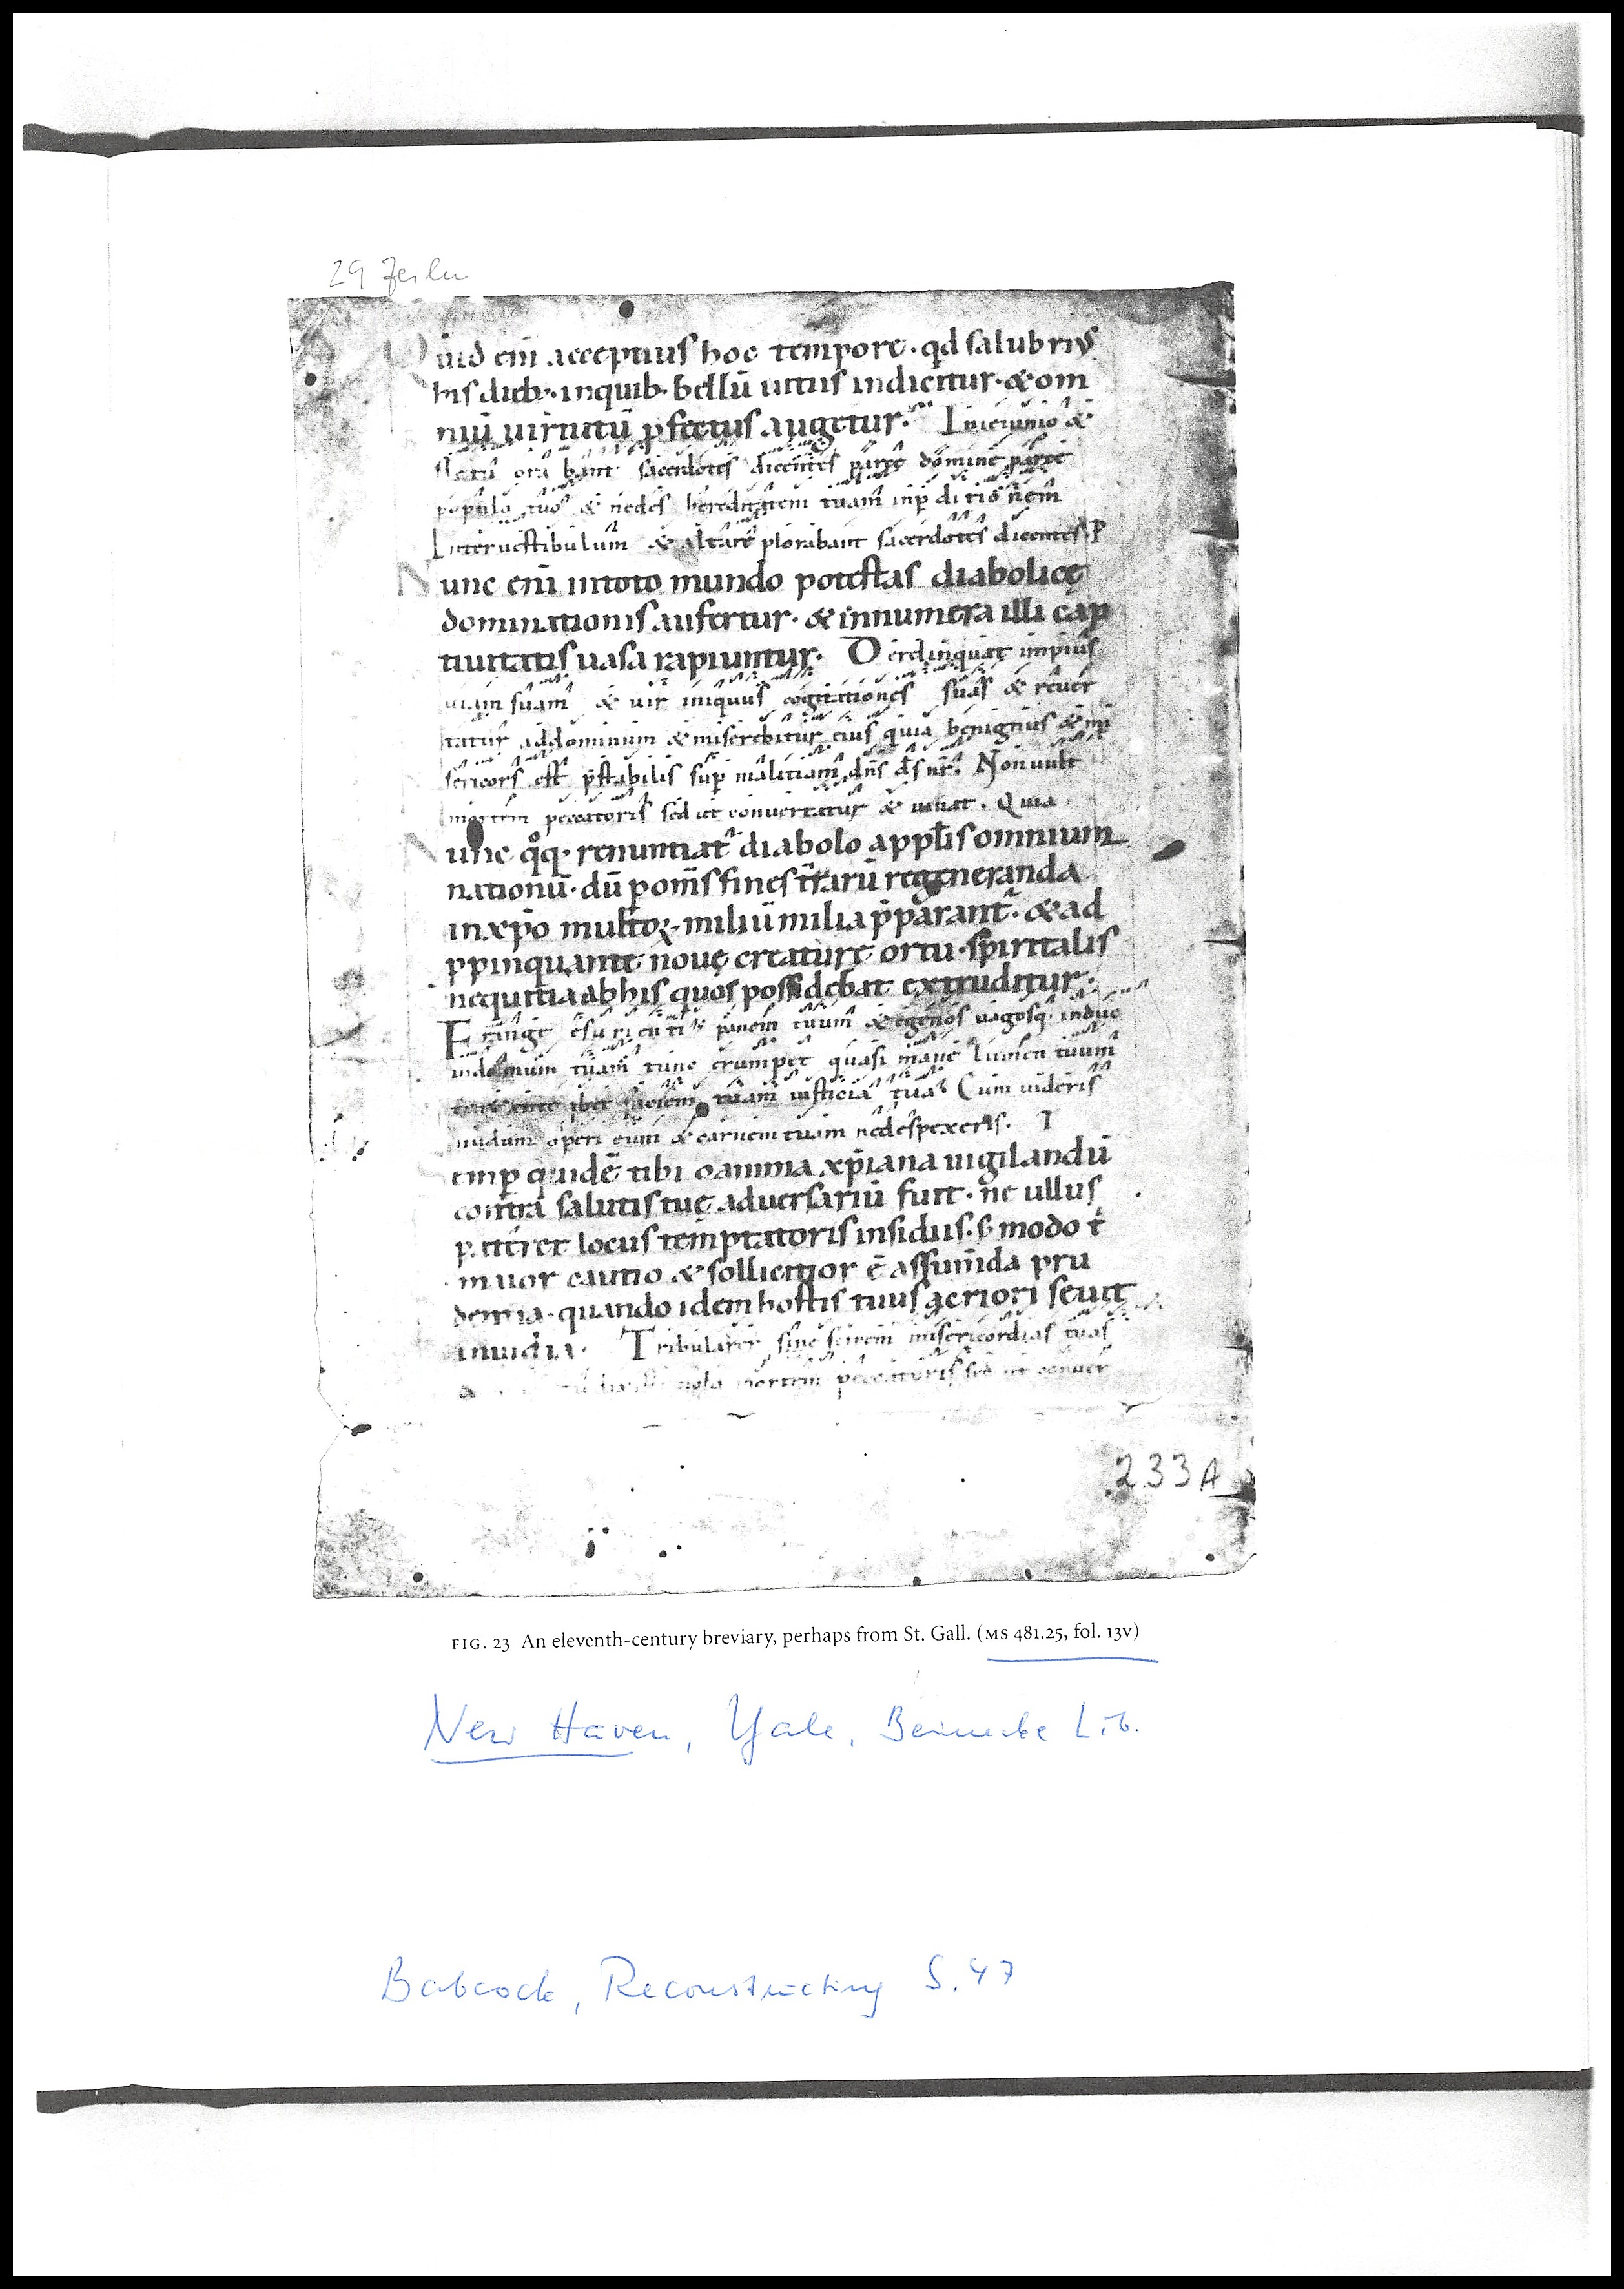 29 Zeilen
Quid eni acceptius hoc tempore · qd salubrius
his dieb; · inquib · bellū uitiis indicitur · & om
niū uirtutū ꝓfectus augetur · In ieiunio &
fletu orabant sacerdotes dicentes parce domine parce
populo tuo & nedes hereditatem tuam inp ditionem
Interuestibulum & altare plorabant sacerdotes dicentes P
Nunc eni intoto mundo potestas diabolicę
dominationis aufertur · & innumera illi cap
tiuitatis uasa rapiuntur · Derelinquat impius
uiam suam & uir iniquus cogitationes suas & reuer
tatur addominum & miserebitur eius quia benignus & mi
sericors est p̄stabilis sup malitiam dns ds nr̄. Non uult
mortem peccatoris sed ut conuertatur & uiuat. Quia
Nunc qͦq · renuntiat᷑ diabolo appl̄is omnium
nationū · dū p om̄s fines t̄rarū regeneranda
inxp̄o multoꝝ · miliū milia p̄parant᷑ · & ad
ppinquante nouę creaturę ortu · sp̄iritalis
nequitia abhis quos possidebat extruditur ·
Frange esurienti panem tuum & egenos uagosq · induc
indomum tuam tunc erumpet quasi mane lumen tuum
faciem tuam iusticia tua Cum uideris
nudum operi eum & carnem tuam nedespexeris. T
emp quidē tibi oanima xp̄iana uigilandū
contra salutis tuę aduersariū fuit · ne ullus
pateret locus temptatoris insidiis · s; modo t̄
maior cautio & sollicitior ē assum̄da pru
dentia · quando idem hostis tuus acriori seuit
inuidia · Tribularer sine scirem misericordias tuas
nolo mortem peccatoris sed ut conuer
233 A
FIG. 23 An eleventh-century breviary, perhaps from St. Gall. (MS 481.25, fol. 13v)
New Haven, Yale, Beinecke Lib.
Babcock, Reconstructing S. 47